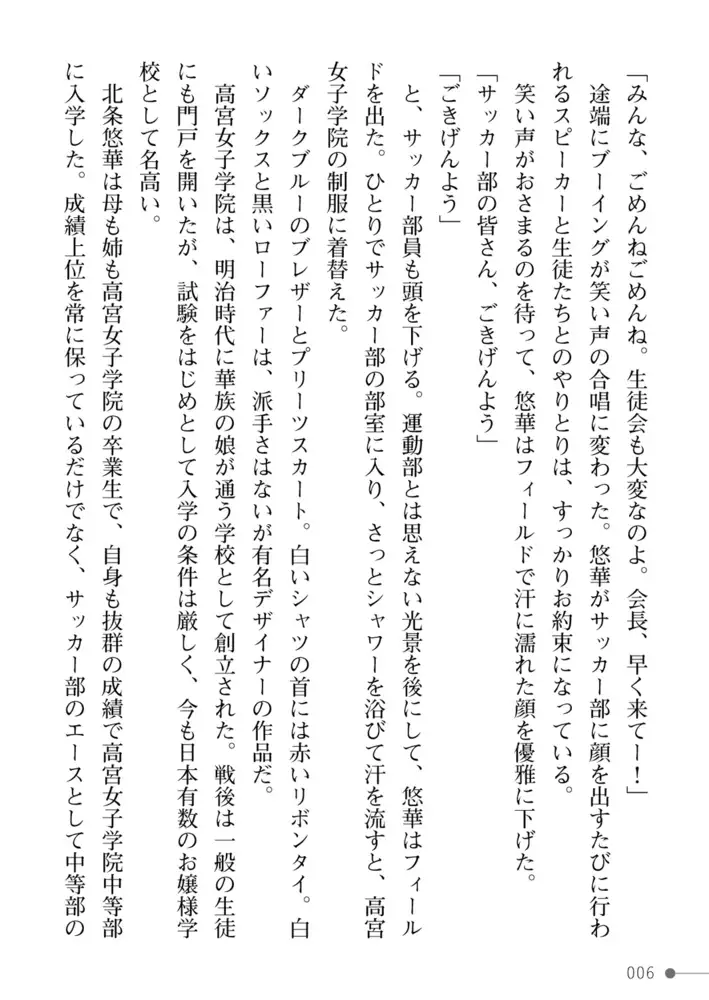 「みんな、ごめんねごめんね。生徒会も大変なのよ。会長、早く来てー！」
　途端にブーイングが笑い声の合唱に変わった。悠華がサッカー部に顔を出すたびに行わ
れるスピーカーと生徒たちとのやりとりは、すっかりお約束になっている。
　笑い声がおさまるのを待って、悠華はフィールドで汗に濡れた顔を優雅に下げた。
「サッカー部の皆さん、ごきげんよう」
「ごきげんよう」
　と、サッカー部員も頭を下げる。運動部とは思えない光景を後にして、悠華はフィール
ドを出た。ひとりでサッカー部の部室に入り、さっとシャワーを浴びて汗を流すと、高宮
女子学院の制服に着替えた。
　ダークブルーのブレザーとプリーツスカート。白いシャツの首には赤いリボンタイ。白
いソックスと黒いローファーは、派手さはないが有名デザイナーの作品だ。
　高宮女子学院は、明治時代に華族の娘が通う学校として創立された。戦後は一般の生徒
にも門戸を開いたが、試験をはじめとして入学の条件は厳しく、今も日本有数のお嬢様学
校として名高い。
　北条悠華は母も姉も高宮女子学院の卒業生で、自身も抜群の成績で高宮女子学院中等部
に入学した。成績上位を常に保っているだけでなく、サッカー部のエースとして中等部の
006